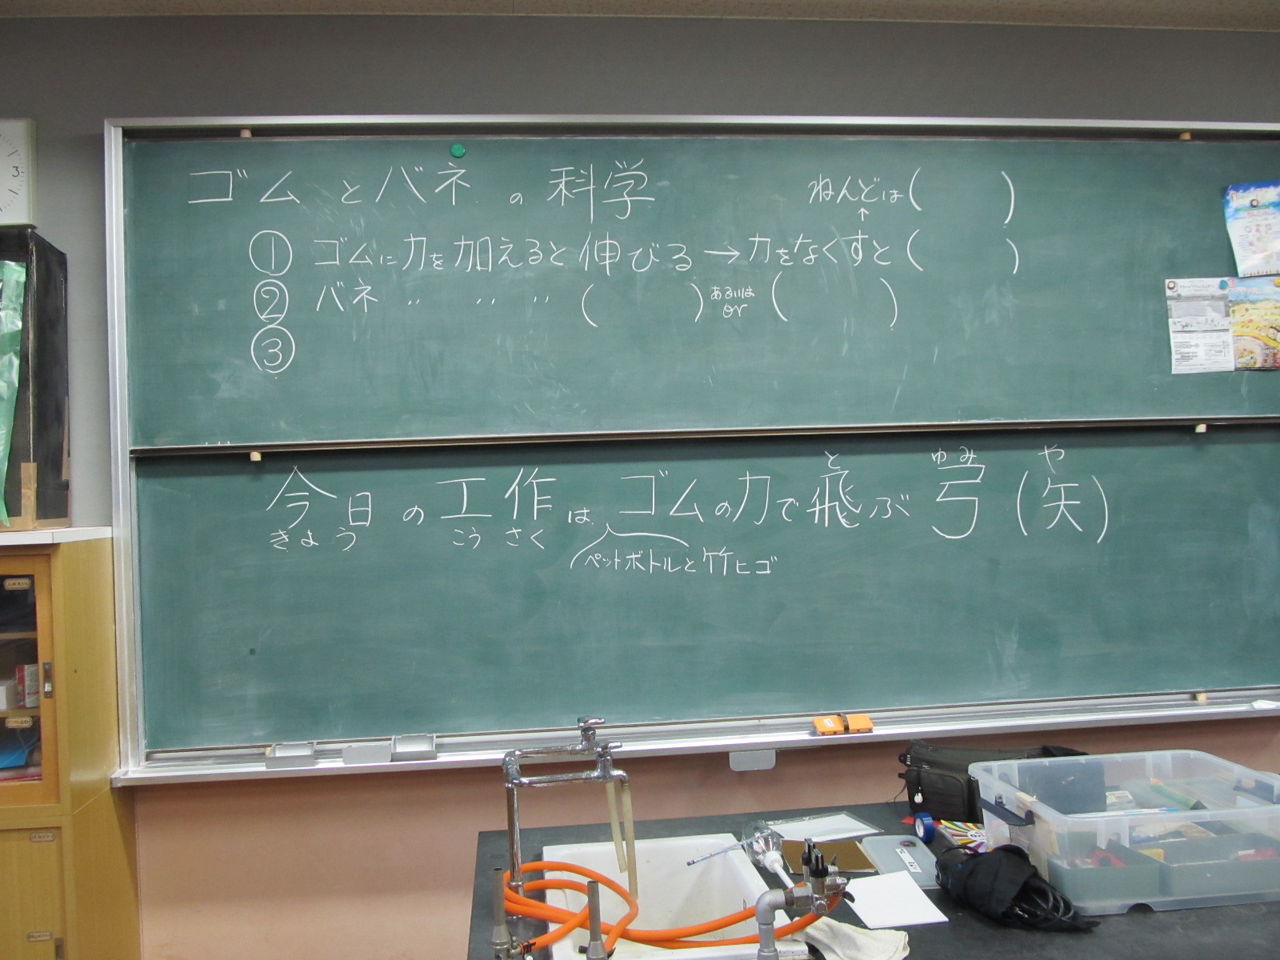 ゴムとバネの科学
ねんどは(　　　)
↑
① ゴムに力を加えると伸びる→力をなくすと(　　　)
② バネ 〃 〃 〃 (　　　) あるいは or (　　　)
③
今日の工作はゴムの力で飛ぶ弓(矢)
きょう こうさく と ゆみ や
ペットボトルと竹ヒゴ
3